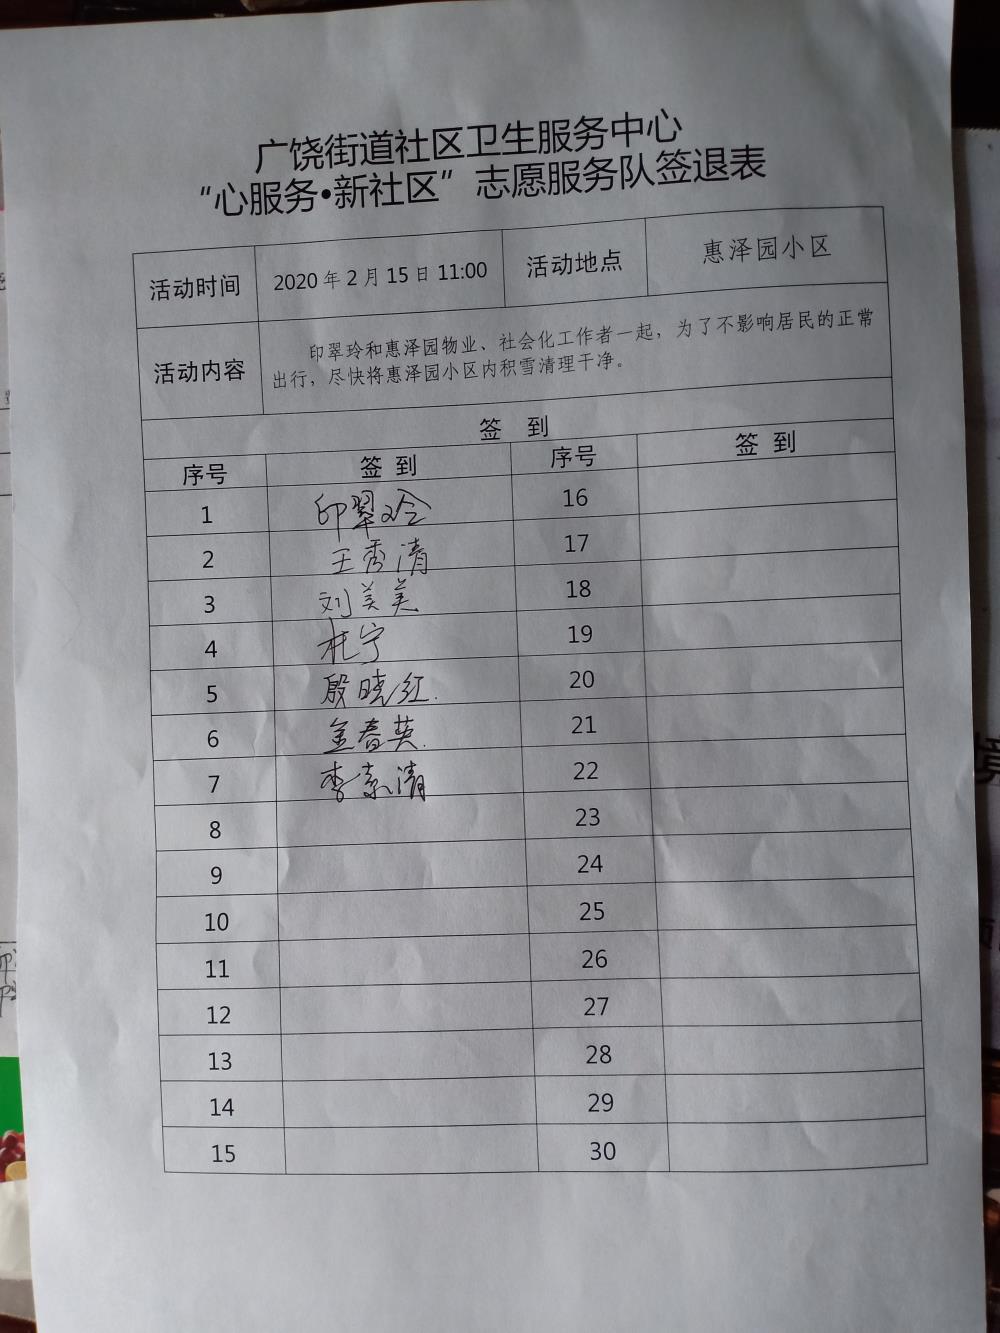 广饶街道社区卫生服务中心
“心服务•新社区”志愿服务队签退表
活动时间 2020年2月15日11:00 活动地点 惠泽园小区
活动内容 印翠玲和惠泽园物业、社会化工作者一起，为了不影响居民的正常
出行，尽快将惠泽园小区内积雪清理干净。
签 到
序号 签 到 序号 签 到
1 印翠玲 16
2 王秀清 17
3 刘美美 18
4 杜宁 19
5 殷晓红 20
6 金春英 21
7 李素清 22
8 23
9 24
10 25
11 26
12 27
13 28
14 29
15 30